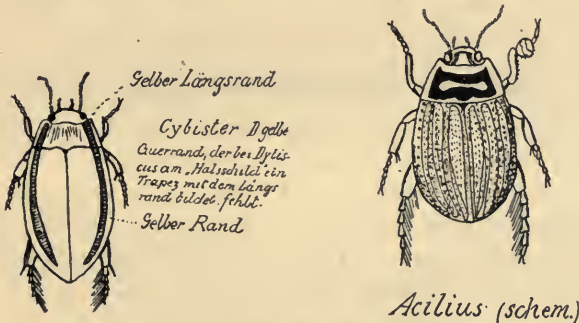 Gelber Längsrand
Cybister D gelbe
Querrand, der bei Dytis-
cus am „Halsschild“ ein
Trapez mit dem Längs
rand bildet, fehlt.
Gelber Rand
Acilius (schem.)